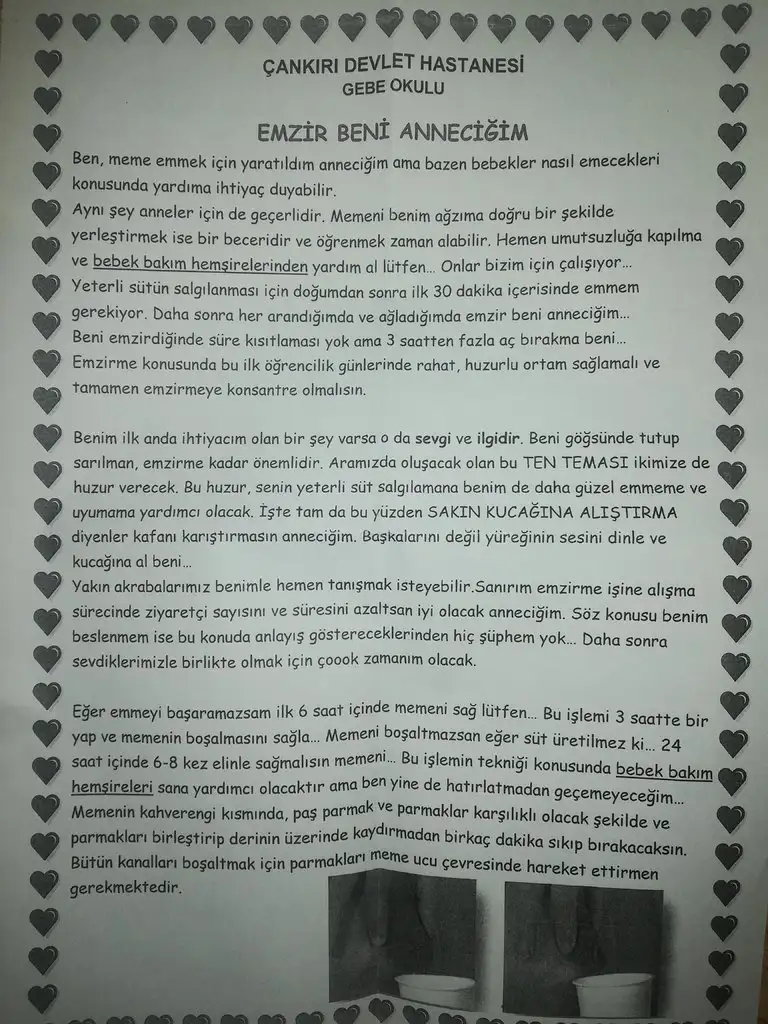 ÇANKIRI DEVLET HASTANESİ
GEBE OKULU
EMZİR BENİ ANNECİĞİM
Ben, meme emmek için yaratıldım anneciğim ama bazen bebekler nasıl emecekleri
konusunda yardıma ihtiyaç duyabilir.
Aynı şey anneler için de geçerlidir. Memeni benim ağzıma doğru bir şekilde
yerleştirmek ise bir beceridir ve öğrenmek zaman alabilir. Hemen umutsuzluğa kapılma
ve bebek bakım hemşirelerinden yardım al lütfen... Onlar bizim için çalışıyor...
Yeterli sütün salgılanması için doğumdan sonra ilk 30 dakika içerisinde emmem
gerekiyor. Daha sonra her arandığımda ve ağladığımda emzir beni anneciğim...
Beni emzirdiğinde süre kısıtlaması yok ama 3 saatten fazla aç bırakma beni...
Emzirme konusunda bu ilk öğrencilik günlerinde rahat, huzurlu ortam sağlamalı ve
tamamen emzirmeye konsantre olmalısın.
Benim ilk anda ihtiyacım olan bir şey varsa o da sevgi ve ilgidir. Beni göğsünde tutup
sarılman, emzirme kadar önemlidir. Aramızda oluşacak olan bu TEN TEMASI ikimize de
huzur verecek. Bu huzur, senin yeterli süt salgılamana benim de daha güzel emmeme ve
uyumama yardımcı olacak. İşte tam da bu yüzden SAKIN KUCAĞINA ALIŞTIRMA
diyenler kafanı karıştırmasın anneciğim. Başkalarını değil yüreğinin sesini dinle ve
kucağına al beni...
Yakın akrabalarımız benimle hemen tanışmak isteyebilir.Sanırım emzirme işine alışma
sürecinde ziyaretçi sayısını ve süresini azaltsan iyi olacak anneciğim. Söz konusu benim
beslenmem ise bu konuda anlayış göstereceklerinden hiç şüphem yok... Daha sonra
sevdiklerimizle birlikte olmak için çoook zamanım olacak.
Eğer emmeyi başaramazsam ilk 6 saat içinde memeni sağ lütfen... Bu işlemi 3 saatte bir
yap ve memenin boşalmasını sağla... Memeni boşaltmazsan eğer süt üretilmez ki... 24
saat içinde 6-8 kez elinle sağmalısın memeni... Bu işlemin tekniği konusunda bebek bakım
hemşireleri sana yardımcı olacaktır ama ben yine de hatırlatmadan geçemeyeceğim...
Memenin kahverengi kısmında, paş parmak ve parmaklar karşılıklı olacak şekilde ve
parmakları birleştirip derinin üzerinde kaydırmadan birkaç dakika sıkıp bırakacaksın.
Bütün kanalları boşaltmak için parmakları meme ucu çevresinde hareket ettirmen
gerekmektedir.